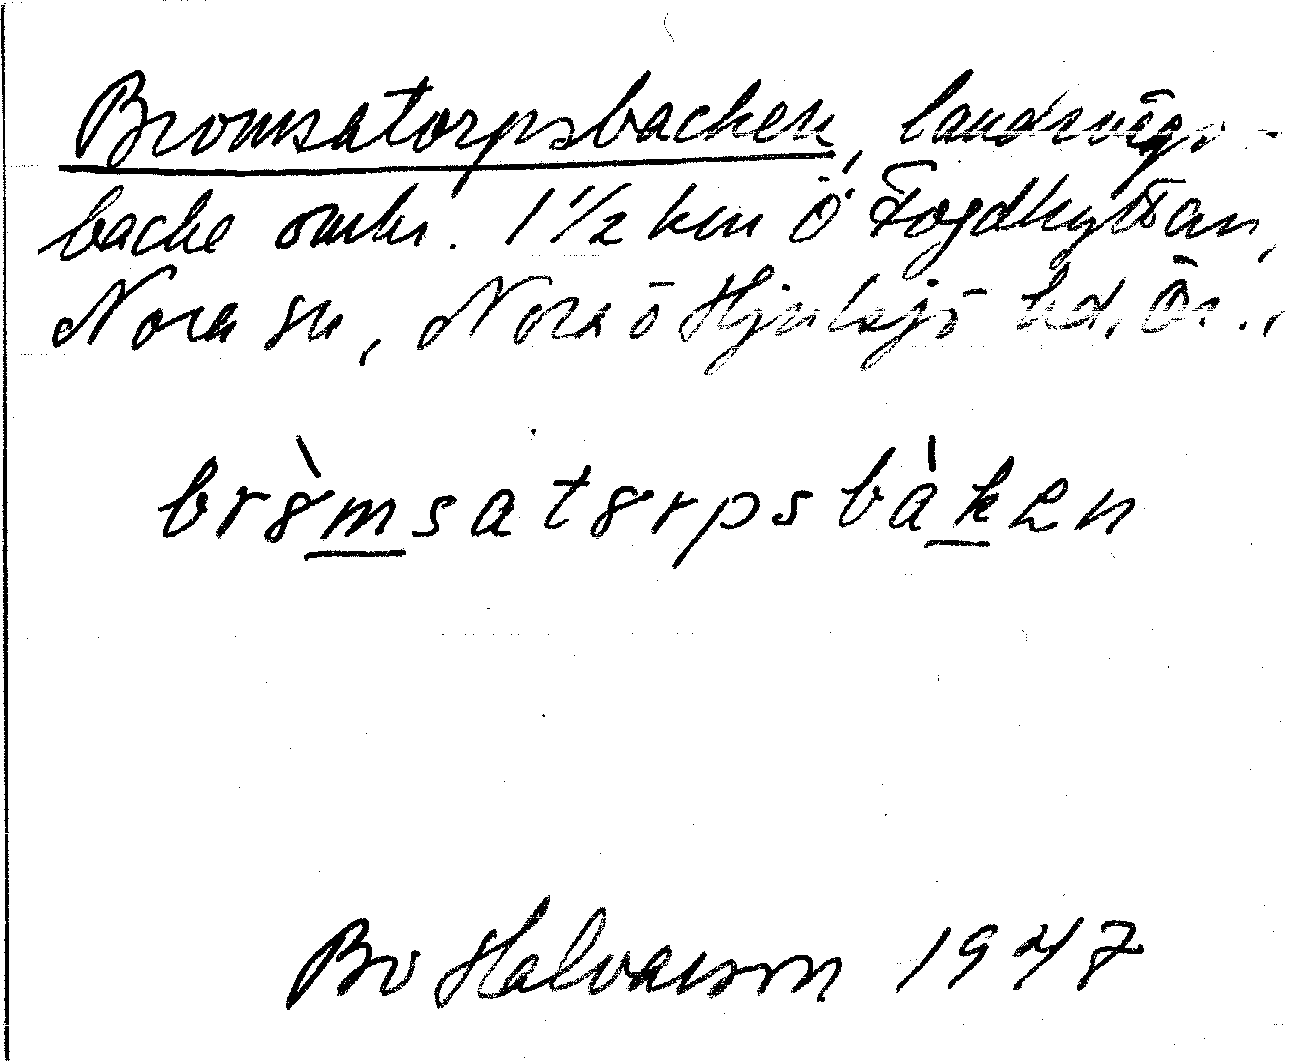 Bromsatorpsbacken, landsvägs-
backe omkr. 1 1/2 km Ö Fogdhyttan,
Nora sn, Nora o Hjulsjö hd, Ör.,
bròmsatorpsbàken
Bo Halvarson 1947